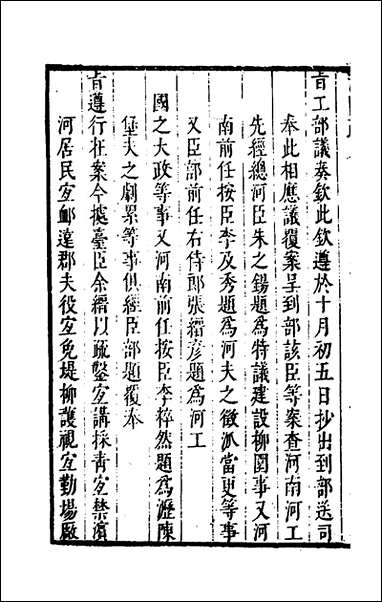 旨工部議奏欽此欽遵於十月初五日抄出到部送司
奉此相應議覆案呈到部該臣等案查河南河工
先經總河臣朱之錫題為特議建設柳園事又河
南前任按臣李及秀題為河夫之僉派當更等事
又臣部前任右侍郎張縉彥題為河工
國之大政等事又河南前任按臣李粹然題為瀝陳
堡夫之劇累等事俱經臣部題覆奉
旨遵行在案今據臺臣余縉以疏鑿宜講採青宜禁濱
河居民宜䘏遠郡夫役宜免堤柳護視宜勤場廠